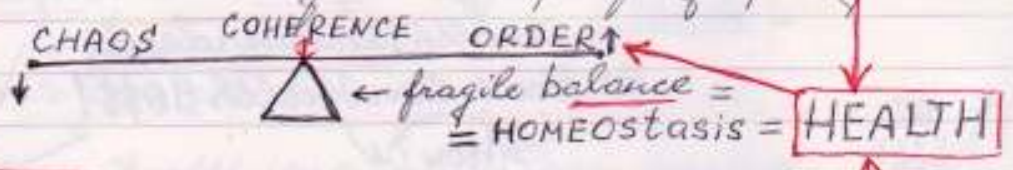 CHAOS COHERENCE ORDER↑
↓ ← fragile balance =
= HOMEOstasis = HEALTH